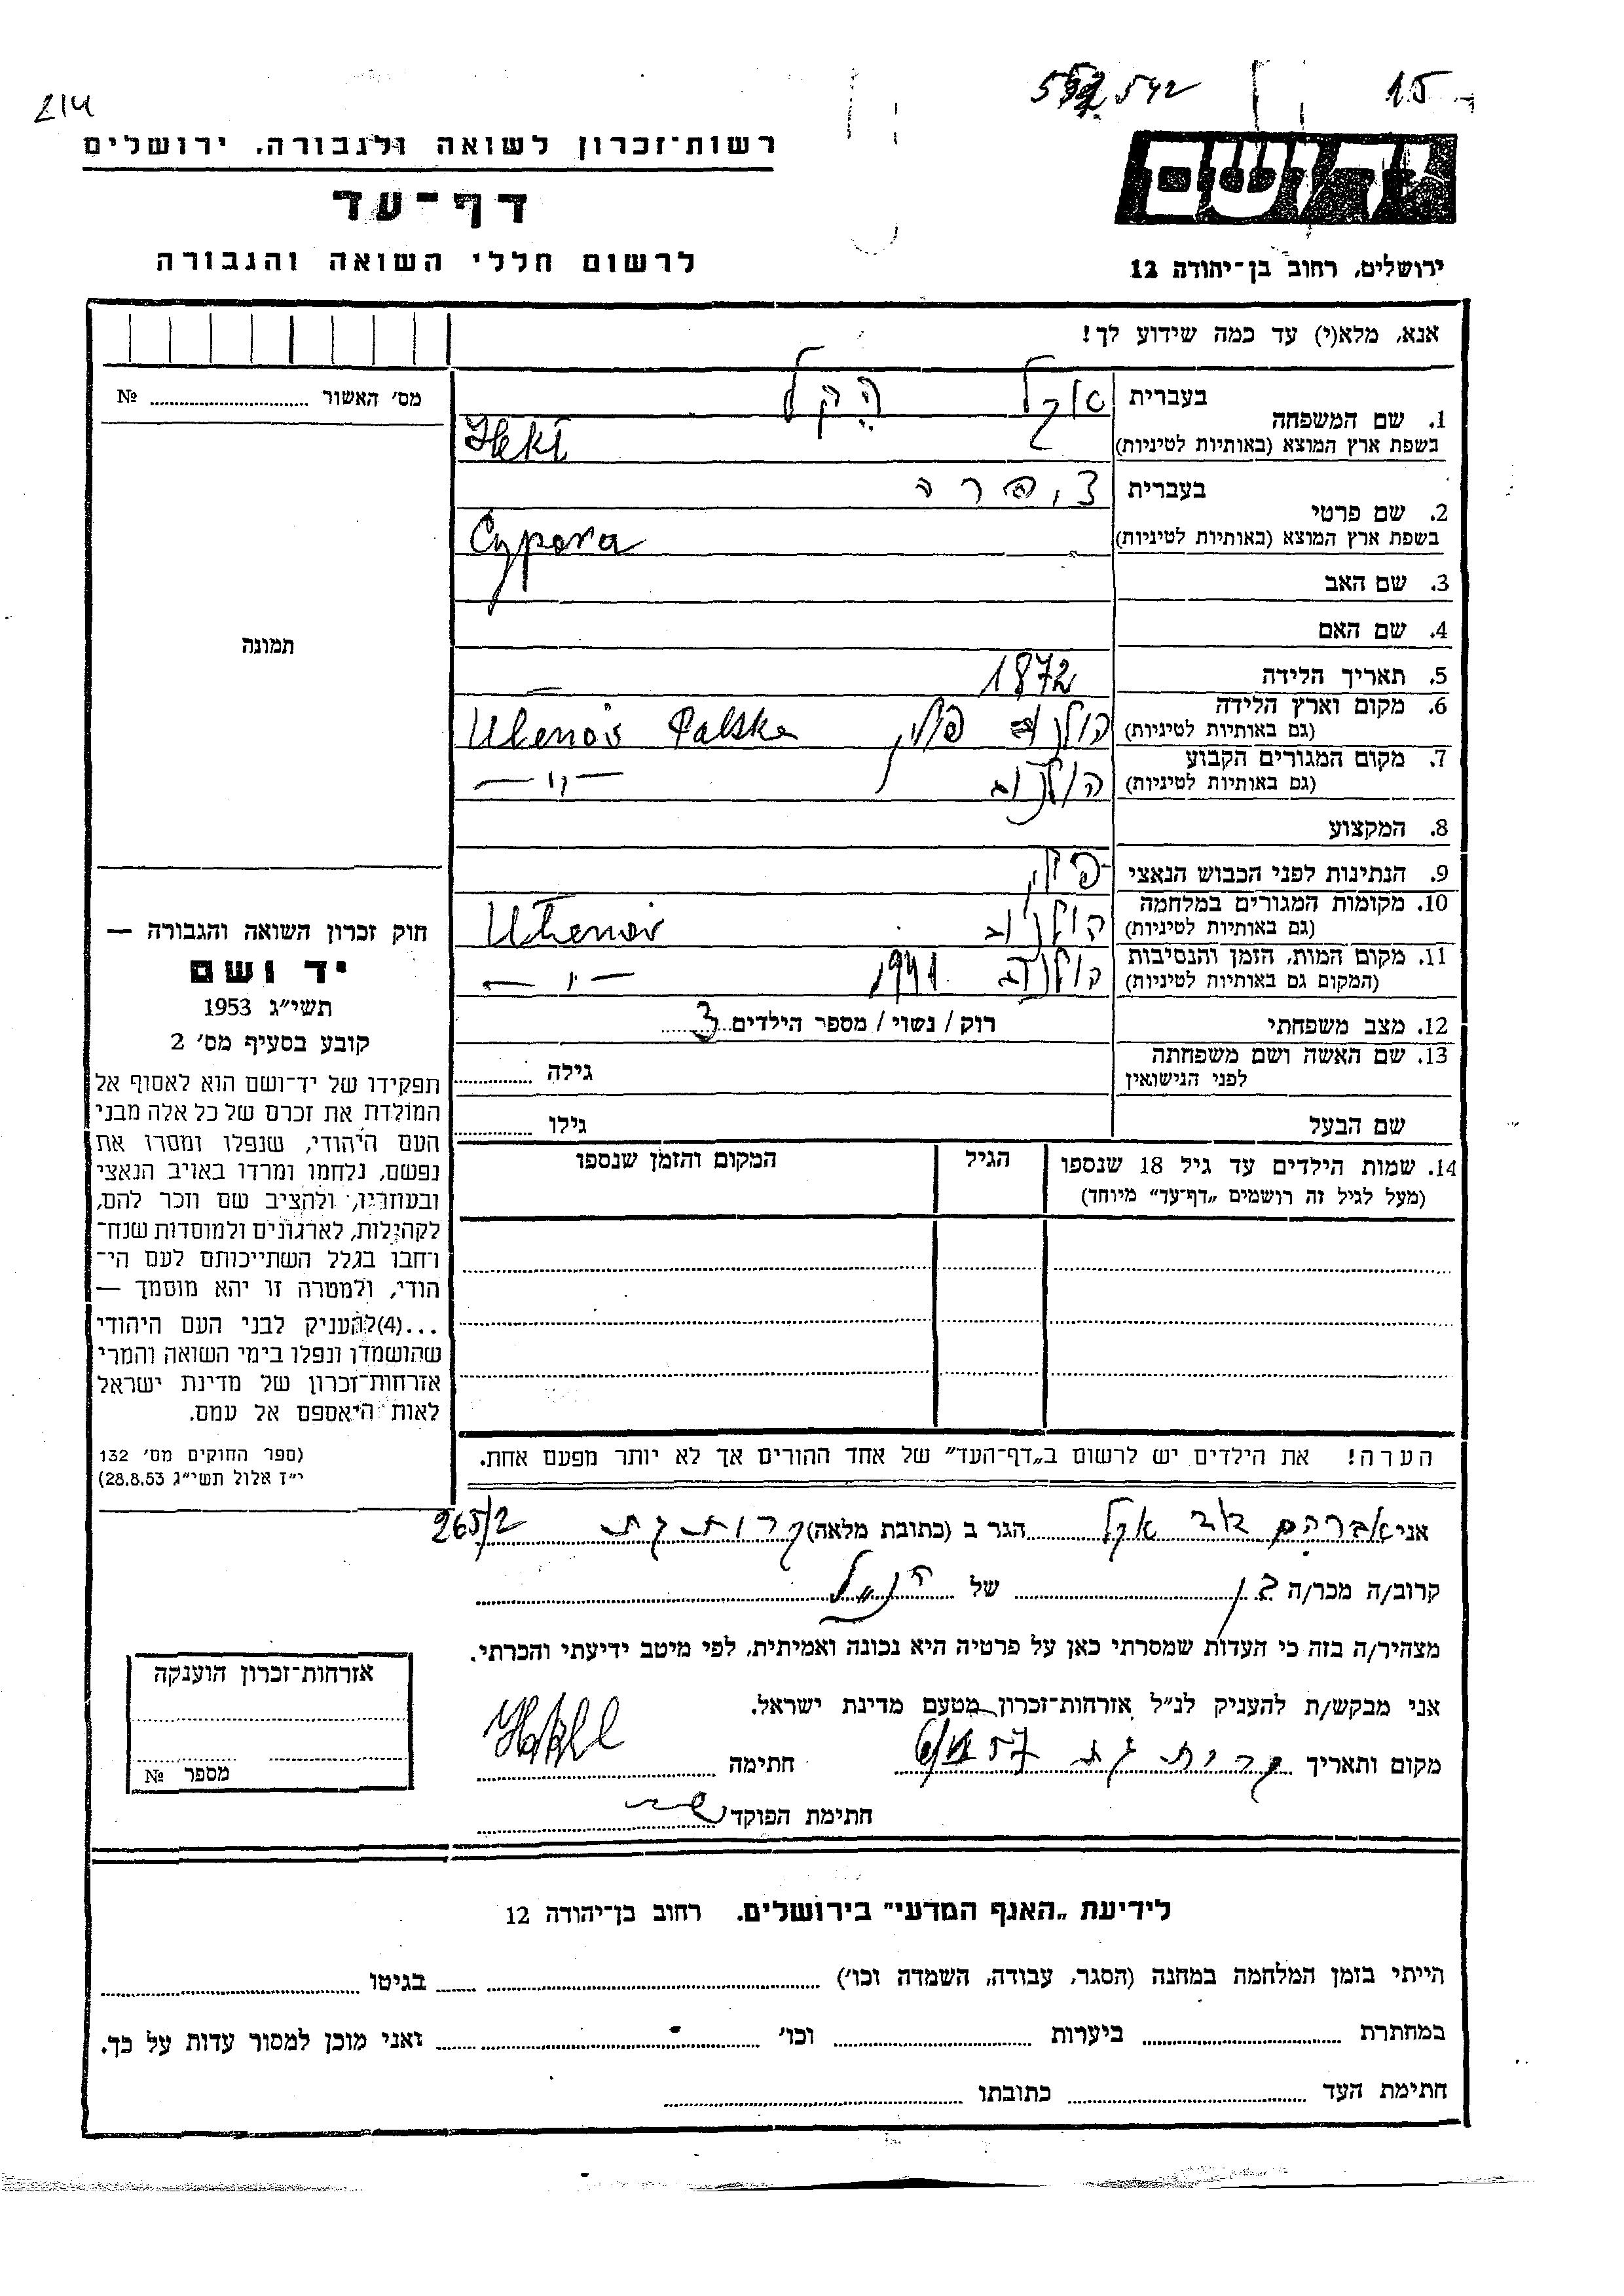 214
542
15
רשות־זכרון לשואה ולגבורה, ירושלים
דף־עד
לרשום חללי השואה והגבורה
יד ושם
ירושלים, רחוב בן־יהודה 12
אנא, מלא(י) עד כמה שידוע לך!
מס׳ האשור № ..........
תמונה
1. שם המשפחה בעברית אקל הקל
בשפת ארץ המוצא (באותיות לטיניות)
2. שם פרטי בעברית צפרה
בשפת ארץ המוצא (באותיות לטיניות) Cypora
3. שם האב
4. שם האם
5. תאריך הלידה 1872 —
6. מקום וארץ הלידה
(גם באותיות לטיניות) פולין
7. מקום המגורים הקבוע
(גם באותיות לטיניות) — ״ —
8. המקצוע
9. הנתינות לפני הכבוש הנאצי
10. מקומות המגורים במלחמה
(גם באותיות לטיניות)
11. מקום המות, הזמן והנסיבות
(המקום גם באותיות לטיניות) 1941 — ״ —
12. מצב משפחתי רוק / נשוי / מספר הילדים 3
13. שם האשה ושם משפחתה
לפני הנישואין גילה ..........
שם הבעל גילו ..........
14. שמות הילדים עד גיל 18 שנספו
(מעל לגיל זה רושמים „דף־עד״ מיוחד)
הגיל
המקום והזמן שנספו
הערה! את הילדים יש לרשום ב„דף־העד״ של אחד ההורים אך לא יותר מפעם אחת.
חוק זכרון השואה והגבורה —
יד ושם
תשי״ג 1953
קובע בסעיף מס׳ 2
תפקידו של יד־ושם הוא לאסוף אל
המולדת את זכרם של כל אלה מבני
העם היהודי, שנפלו ומסרו את
נפשם, נלחמו ומרדו באויב הנאצי
ובעוזריו, ולהציב שם וזכר להם,
לקהילות, לארגונים ולמוסדות שנח־
רחבו בגלל השתייכותם לעם הי־
הודי, ולמטרה זו יהא מוסמך —
...(4)להעניק לבני העם היהודי
שהושמדו ונפלו בימי השואה והמרי
אזרחות־זכרון של מדינת ישראל
לאות היאספם אל עמם.
(ספר החוקים מס׳ 132
י״ז אלול תשי״ג 28.8.53)
אני אברהם דוד אקל הגר ב (כתובת מלאה) קרית גת 265/2
קרוב/ה מכר/ה בן של הנ״ל
מצהיר/ה בזה כי העדות שמסרתי כאן על פרטיה היא נכונה ואמיתית, לפי מיטב ידיעתי והכרתי.
אני מבקש/ת להעניק לנ״ל אזרחות־זכרון מטעם מדינת ישראל.
מקום ותאריך קרית גת חתימה
חתימת הפוקד
אזרחות־זכרון הוענקה
מספר №
לידיעת „האגף המדעי״ בירושלים. רחוב בן־יהודה 12
הייתי בזמן המלחמה במחנה (הסגר, עבודה, השמדה וכו׳) .......... בגיטו ..........
במחתרת .......... ביערות .......... וכו׳ .......... ואני מוכן למסור עדות על כך.
חתימת העד .......... כתובתו ..........